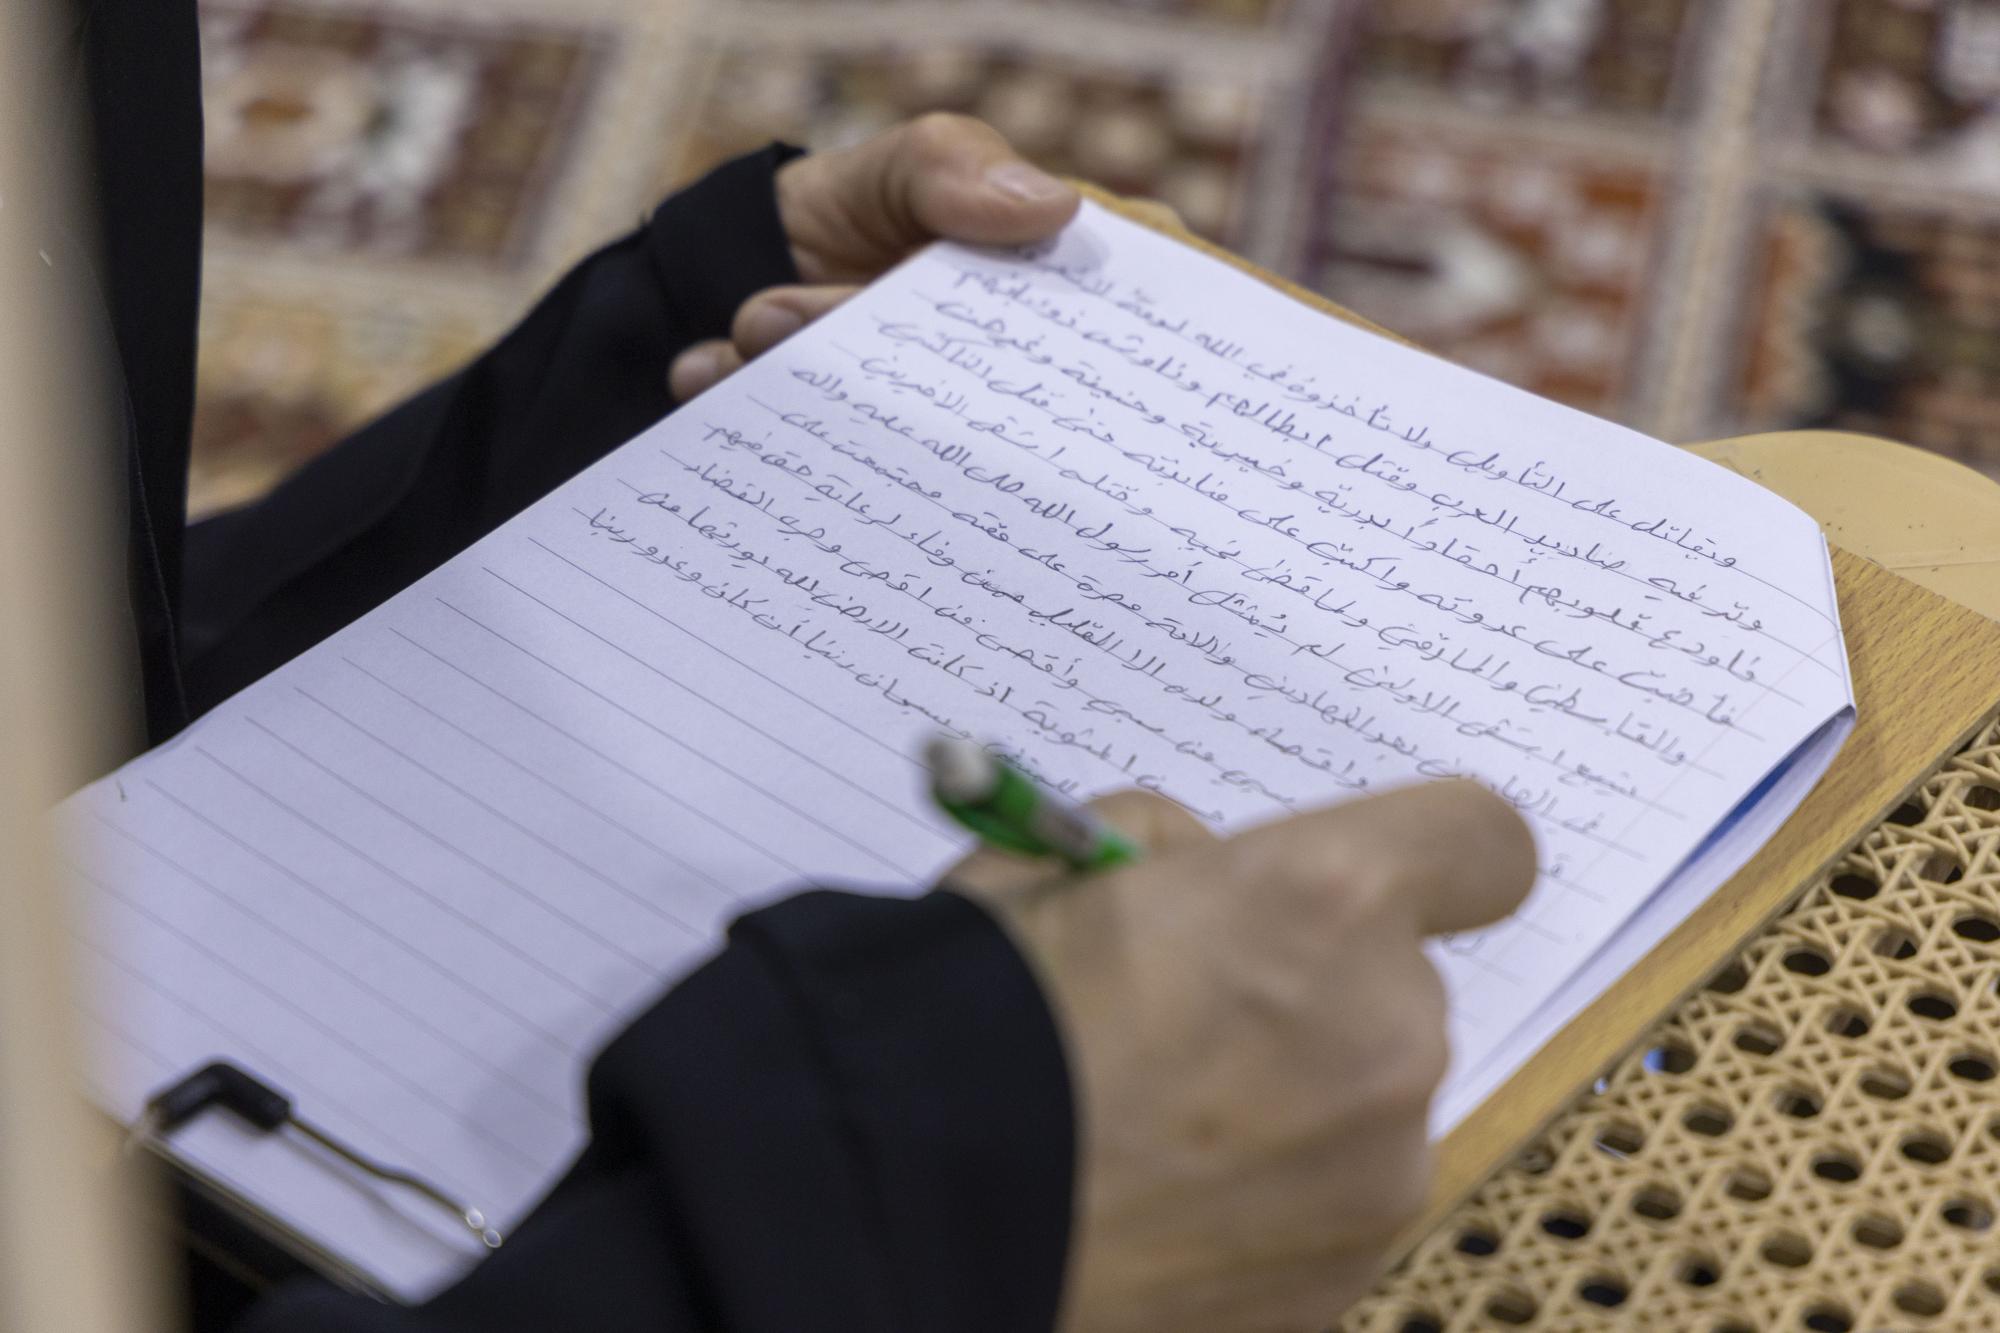 ويقاتل على التأويل ولا تأخذه في الله لومة
وتر فيه صناديد العرب وقتل ابطالهم وناوش ذؤبانهم
فاودع قلوبهم أحقاداً بدريّة وخيبرية وحنينية وغيرهن
فأضبّت على عدوته واكبّت على منابذته حتى قتل الناكثين
والقاسطين والمارقين ولما قضى نحبه وقتله اشقى الاخرين
يتبع اشقى الاولين لم يُمتثل أمر رسول الله صلى الله عليه واله
في الهادين بعد الهادين والامة مصرة على مقته مجتمعة على
واقصاء ولده الا القليل ممن وفاء لرعاية حق فيهم
سبي من سبي وأقصى من اقصى وجرى القضاء
حسن المثوبة اذ كانت الارض لله يورثها من
للمتقين وسبحان ربنا أن كان وعد ربنا